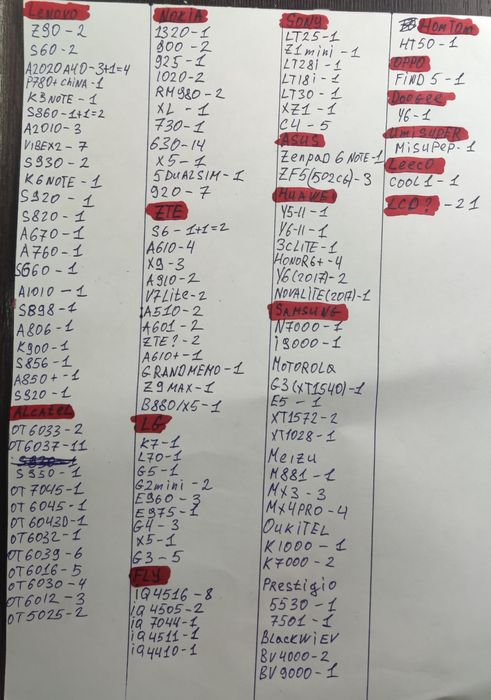 Lenovo
Z90-2
S60-2
A2020A40-3+1=4
P780+china-1
K3NOTE-1
S860-1+1=2
A2010-3
VIBEX2-7
S930-2
K6NOTE-1
S920-1
S820-1
A670-1
A760-1
S660-1
A1010-1
S898-1
A806-1
K900-1
S856-1
A850+-1
S920-1
ALCATEL
OT6033-2
OT6037-11
S930-1
S950-1
OT7045-1
OT6045-1
OT6043D-1
OT6032-1
OT6039-6
OT6016-5
OT6030-4
OT6012-3
OT5025-2
NOKIA
1320-1
800-2
925-1
1020-2
RM980-2
XL-1
730-1
630-14
X5-1
5DUALSIM-1
920-7
ZTE
S6-1+1=2
A610-4
X9-3
A910-2
V7Lite-2
A510-2
A601-2
ZTE?-2
A610+-1
GRANDMEMO-1
Z9MAX-1
B880/X5-1
LG
K7-1
L70-1
G5-1
G2mini-2
E960-3
E975-1
G4-3
X5-1
G3-5
FLY
iQ4516-8
iQ4505-2
iQ7044-1
iQ4511-1
iQ4410-1
SONY
LT25-1
Z1mini-1
LT28i-1
LT18i-1
LT30-1
XZ1-1
C4-5
ASUS
Zenpad 6 NOTE-1
ZF5(502CG)-3
HUAWEI
Y5-II-1
Y6-II-1
3CLITE-1
HONOR6+-4
Y6(2017)-2
NOVALITE(2017)-1
SAMSUNG
N7000-1
i9000-1
MOTOROLA
G3(XT1540)-1
E5-1
XT1572-2
XT1028-1
Meizu
M881-1
MX3-3
MX4PRO-4
OUKITEL
K1000-1
K7000-2
Prestigio
5530-1
7501-1
BLACKWiEV
BV4000-2
BV9000-1
HomTom
HT50-1
OPPO
FiND 5-1
Doogee
Y6-1
UMISUPER
Misuper-1
Leeco
COOL1-1
LCD?-21